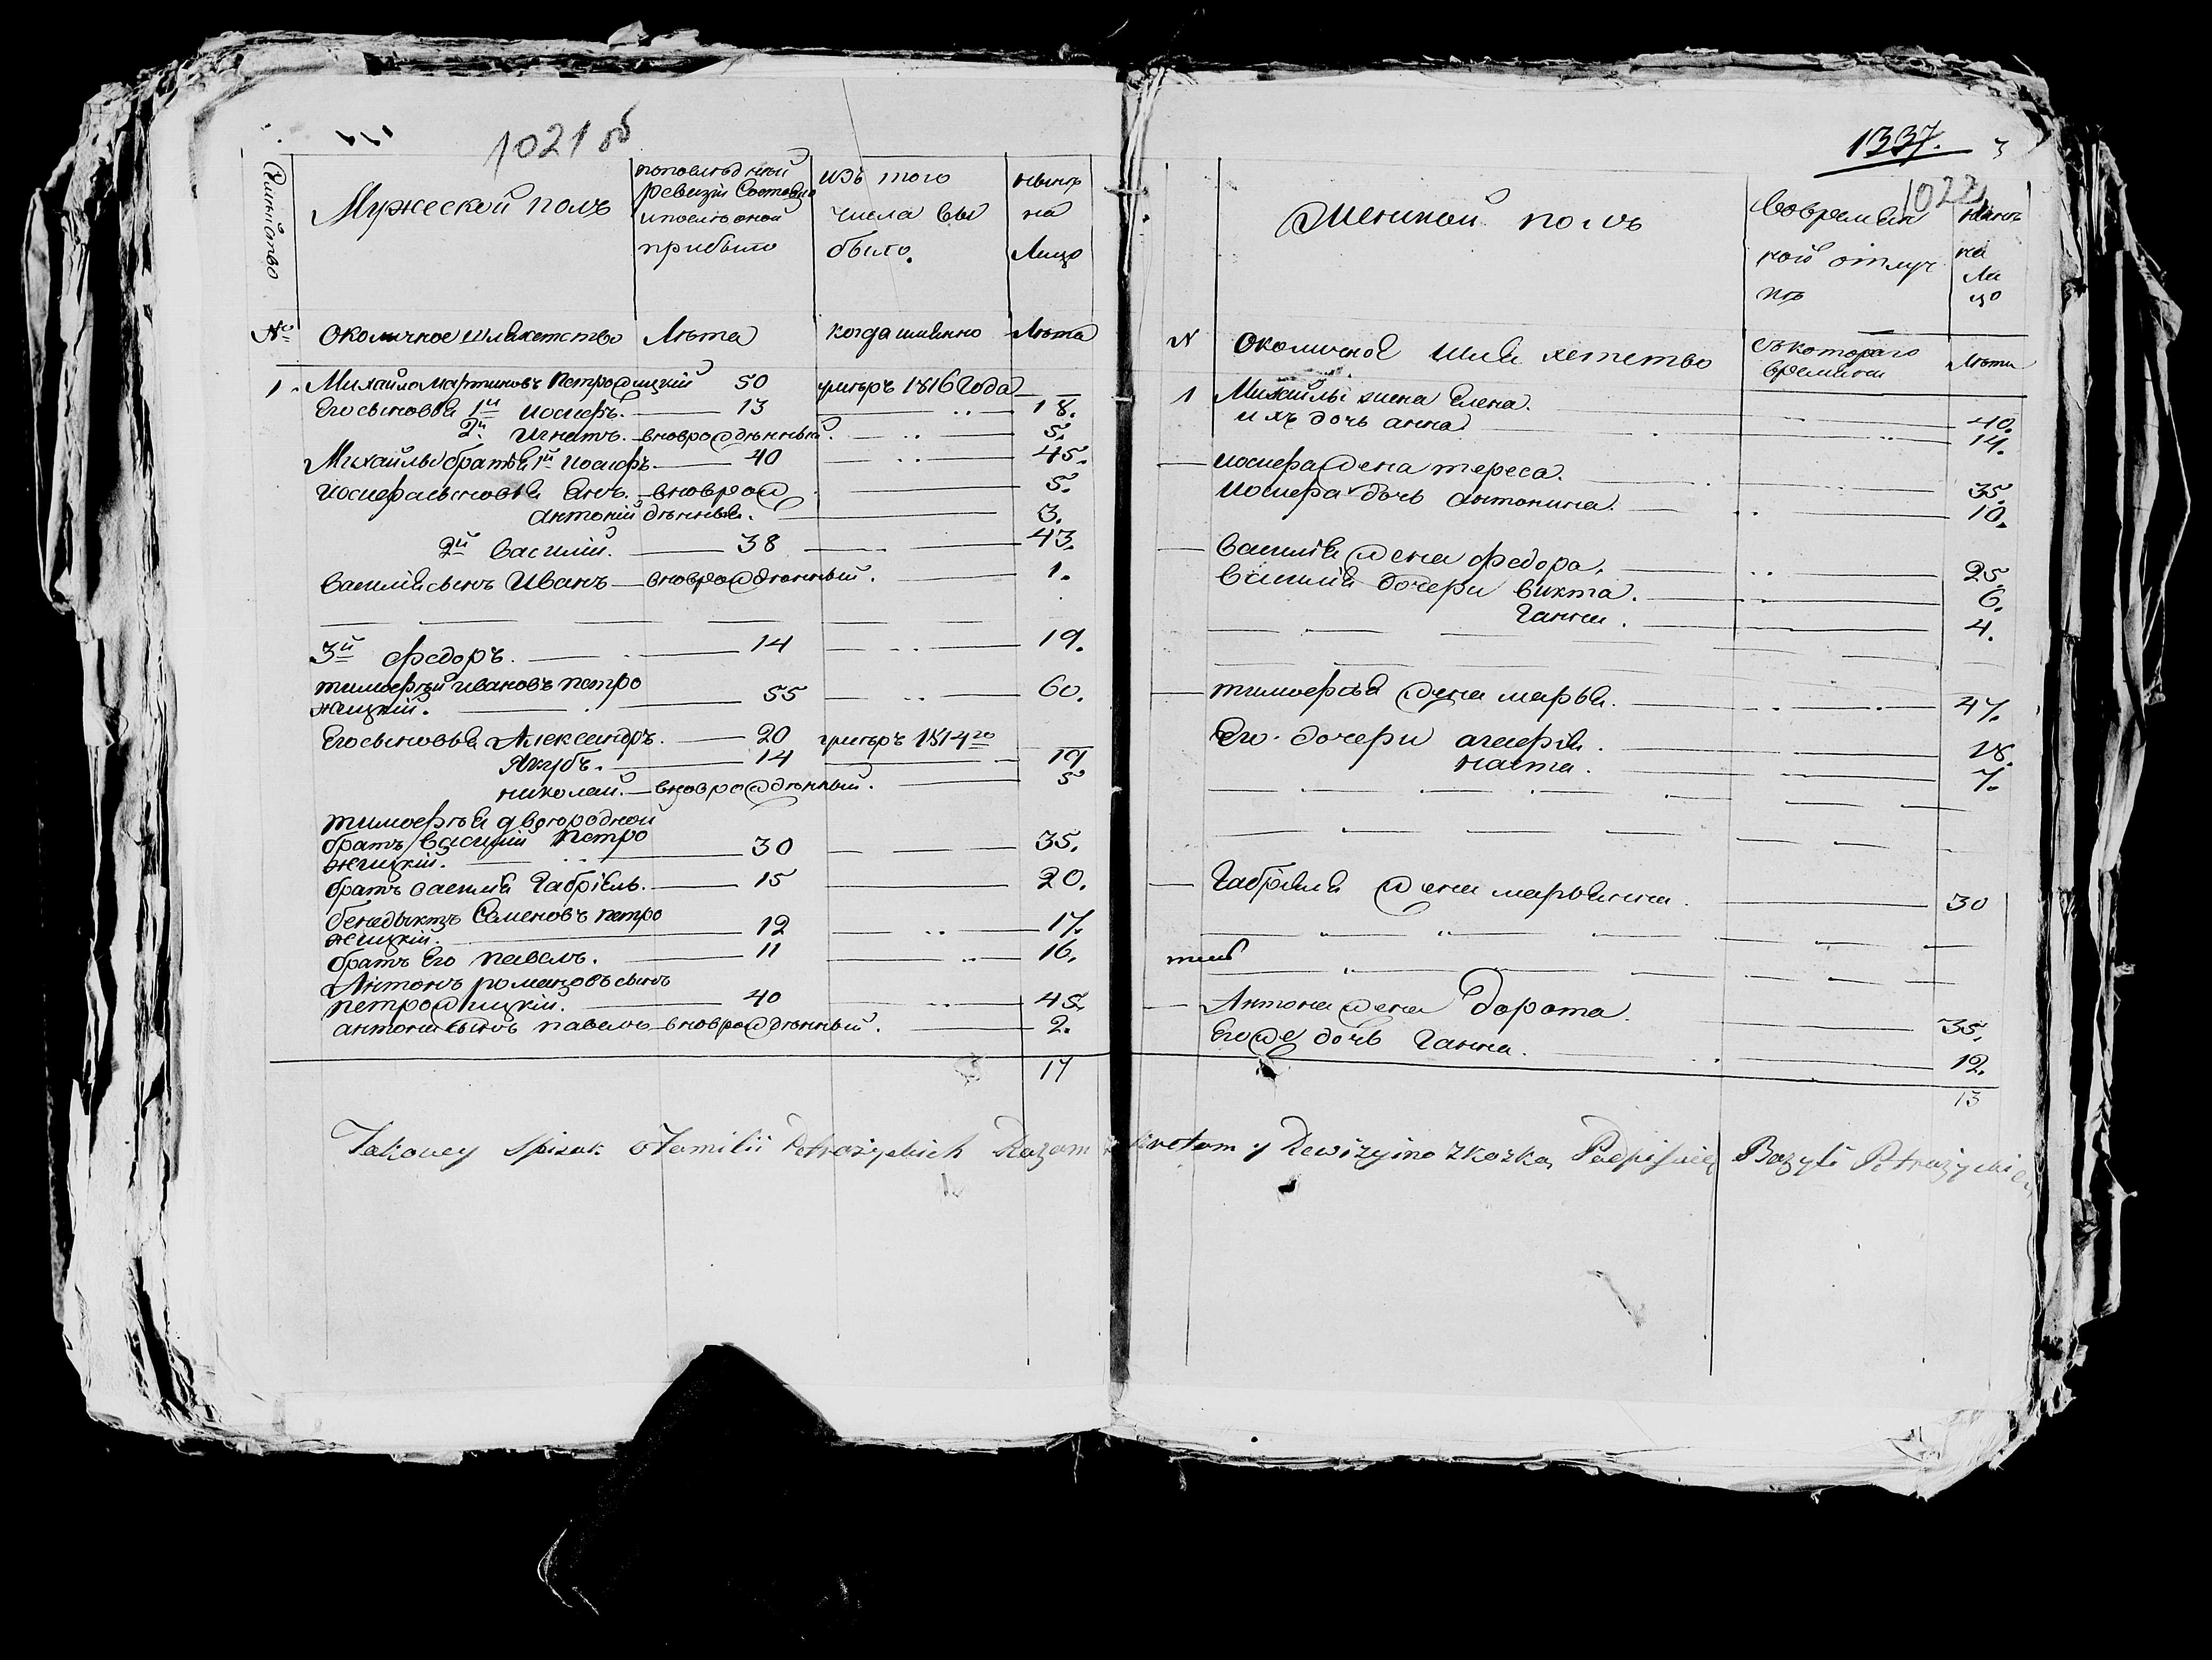 1021 об
Мужеской полъ
попоследней ревизіи состояло ипосле оной прибыло
изъ того числа выбыло.
ныне на Лицо
№ околичное шляхетство Лѣта когда имянно Лѣта
1. Михайло мартиновъ Петрожицкій 50 умеръ 1816 года —
Его сыновья 1й иосифъ. 13 — 18.
2й игнатъ. вноврожденный. — 5.
Михайлы братья 1й иосифъ. 40 — 45.
иосифа сыновья Янъ. вноврож — 5.
антоній денные. — 3.
2й василій. 38 — 43.
василія сынъ Иванъ вноврожденный. — 1.
3й федоръ. 14 — 19.
тимофей ивановъ петро
жицкій. 55 — 60.
Его сыновья Александръ. 20 умеръ 1814го —
Якубъ. 14 — 19
николай. вноврожденный. 5
тимофея двоюродной
братъ василий Петро
жицкій. 30 — 35.
братъ василія Габріель. 15 — 20.
бенедыктъ Семеновъ петро
жицкій. 12 — 17.
братъ Его павелъ. 11 — 16.
Антонъ романовъ сынъ
петрожицкій. 40 — 45.
антона сынъ павелъ вноврожденный. 2.
17
1337. 3
1022
Женской полъ
вовремян
ной отлуч
ке
ныне
на
Ли
цо
N околичное шляхетство съ котораго времяни Лѣта
1 Михайлы жена Елена. 40.
ихъ дочь анна 14.
— иосифа жена тереса. 35.
иосифа дочь антонина. 10.
— василія жена федора. 25.
василія дочери викта. 6.
Ганна. 4.
— тимофея жена марья. 47.
Его дочери агафія. 18.
наста. 7.
— Габріеля жена марьянна. 30
— Антона жена дорота. 35.
Его же дочь Ганна. 12.
13
Takowy spisak Familii Petrażyckich Razam y Rewizyino zkazka Padpisuię Bazyli Petrażycki